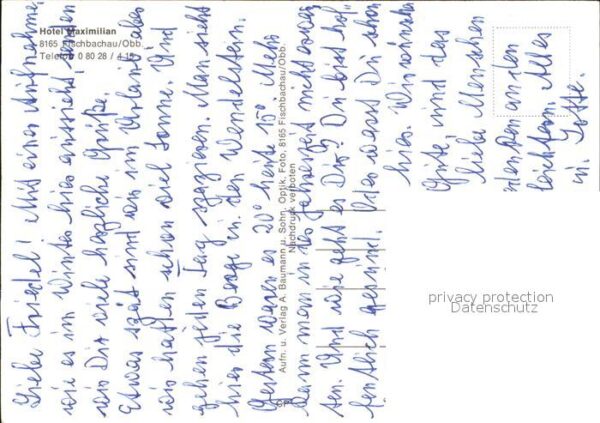 Hotel Maximilian
8165 Fischbachau/Obb.
Telefon 0 80 28 / 4 15
Lieber Friedel! Mit einer Aufnahme,
wie es im Winter hier aussieht, senden
wir Dir viele herzliche Grüße.
Etwas spät sind wir im Urlaub, aber
wir hatten schon viel Sonne. Und
gehen jeden Tag spazieren. Man sieht
hier die Berge u. den Wendelstein.
Gestern waren es 20° heute 15°. Mehr
kann man um diese Jahreszeit nicht erwar
ten. Und wie geht es Dir? Du bist hof
fentlich gesund. Oder warst Du schon
hier. Wir wünschen
Gute und das
liebe Menschen
denken an den
Alles
u. Lotte.
Aufn. u. Verlag A. Baumann u. Sohn, Optik, Foto, 8165 Fischbachau/Obb.
Nachdruck verboten
privacy protection
Datenschutz